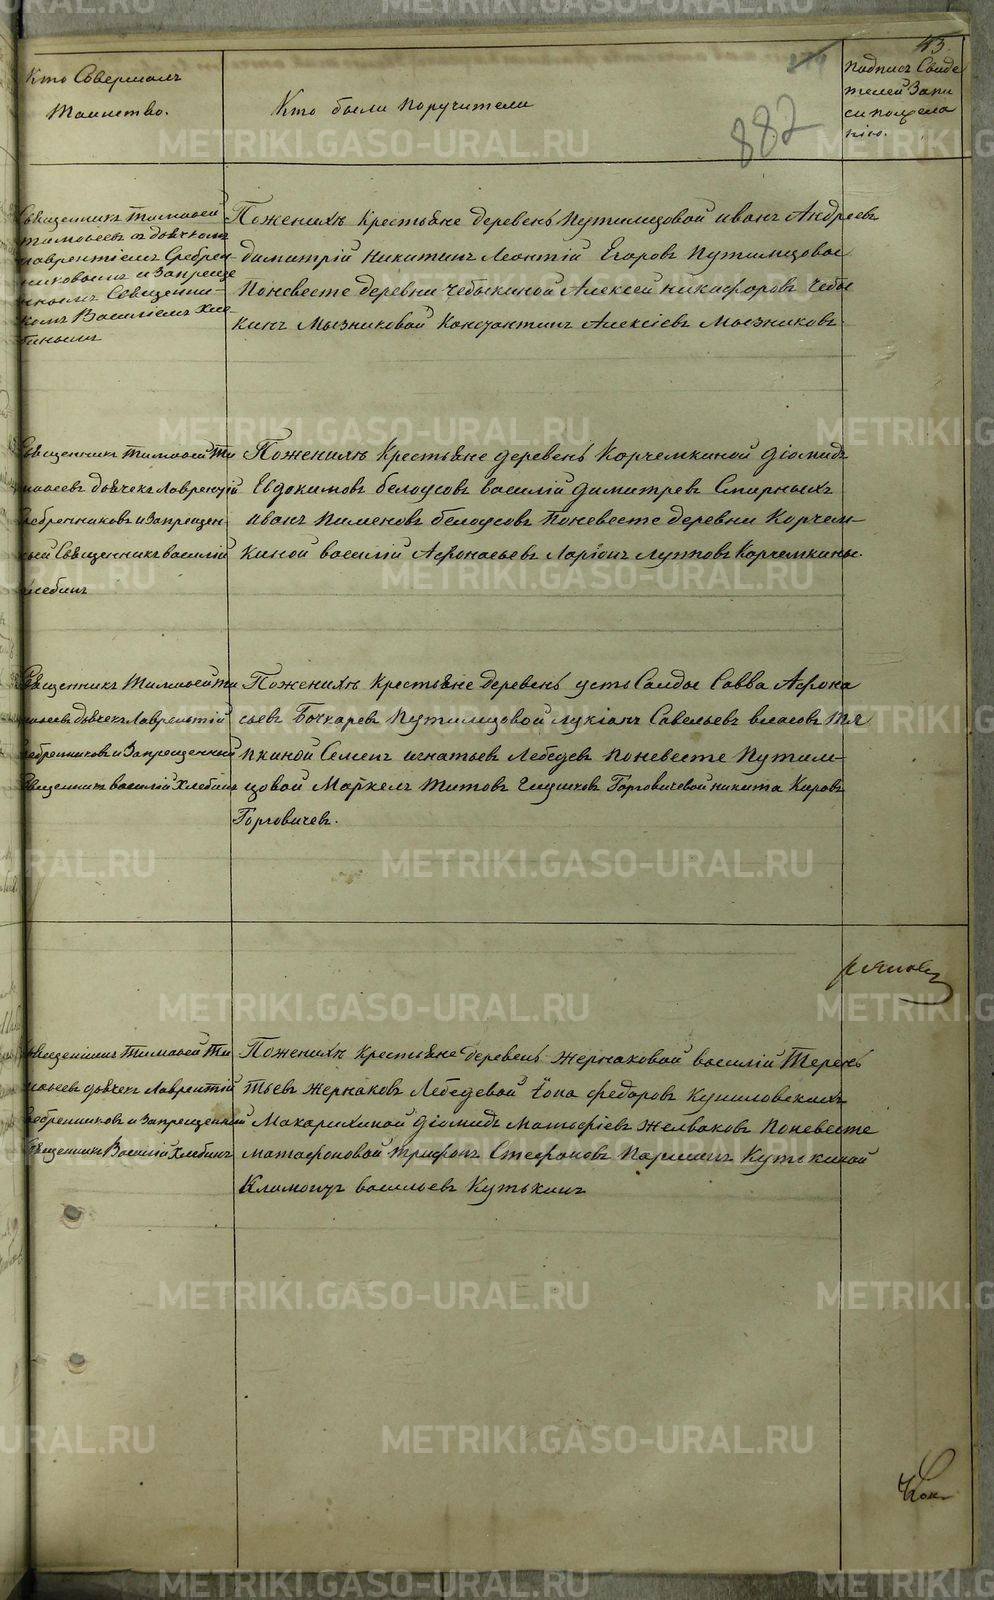 43
882
Кто Совершалъ
Таинство.
Кто были поручители
подпись Свиде
телей Запи
си по жела
нію.
Священникъ Тимофей
Тимофеевъ с дьячкомъ
Лаврентіемъ Сребрен-
никовымъ и Запреще
ннымъ Священни-
комъ Василіемъ Хле
бинымъ
По женихѣ крестьяне деревень Путимцовой Иванъ Андреевъ
Димитрій Никитинъ Леонтій Егоровъ Путимцовы
По невесте деревни Чебыкиной Алексей Никифоровъ Чебы
кинъ Мызниковой Константинъ Алексіевъ Мызниковъ.
Священникъ Тимофей Ти
мофеевъ дьячекъ Лаврентій
Сребренниковъ и Запрещен
ный Священникъ Василій
Хлебинъ
По женихѣ Крестьяне деревень Корчемкиной Діомидъ
Евдокимовъ Белоусовъ Василій Димитревъ Смирныхъ
Иванъ Пименовъ Белоусовъ По невесте деревни Корчем-
киной Василій Афонасьевъ Ларіонъ Корчемкины.
Священникъ Тимофей Ти
мофеевъ дьячекъ Лаврентій
Сребренниковъ и Запрещенный
Священникъ Василій Хлебинъ
По женихѣ Крестьяне деревень Усть Салды Савва Афона
сьевъ Бочкаревъ Путимцовой Лукіанъ Савельевъ Власовъ Тя
пкиной Семенъ Игнатьевъ Лебедевъ По невесте Путим-
цовой Маркелъ Титовъ Глушковъ Горговичевой Никита Кировъ
Горговичевъ.
Священникъ Тимофей Ти
мофеевъ дьячекъ Лаврентій
Сребренниковъ и Запрещенный
Священникъ Василій Хлебинъ
По женихѣ Крестьяне деревень Жернаковой Василій Терень
тьевъ Жернаковъ Лебедевой Іона Федоровъ
Макарихиной Діомидъ Матофіевъ Желваковъ По невесте
Матафоновой Трифонъ Стефановъ Паршинъ Кутькиной
Климонтъ Васильевъ Кутькинъ
METRIKI.GASO-URAL.RU